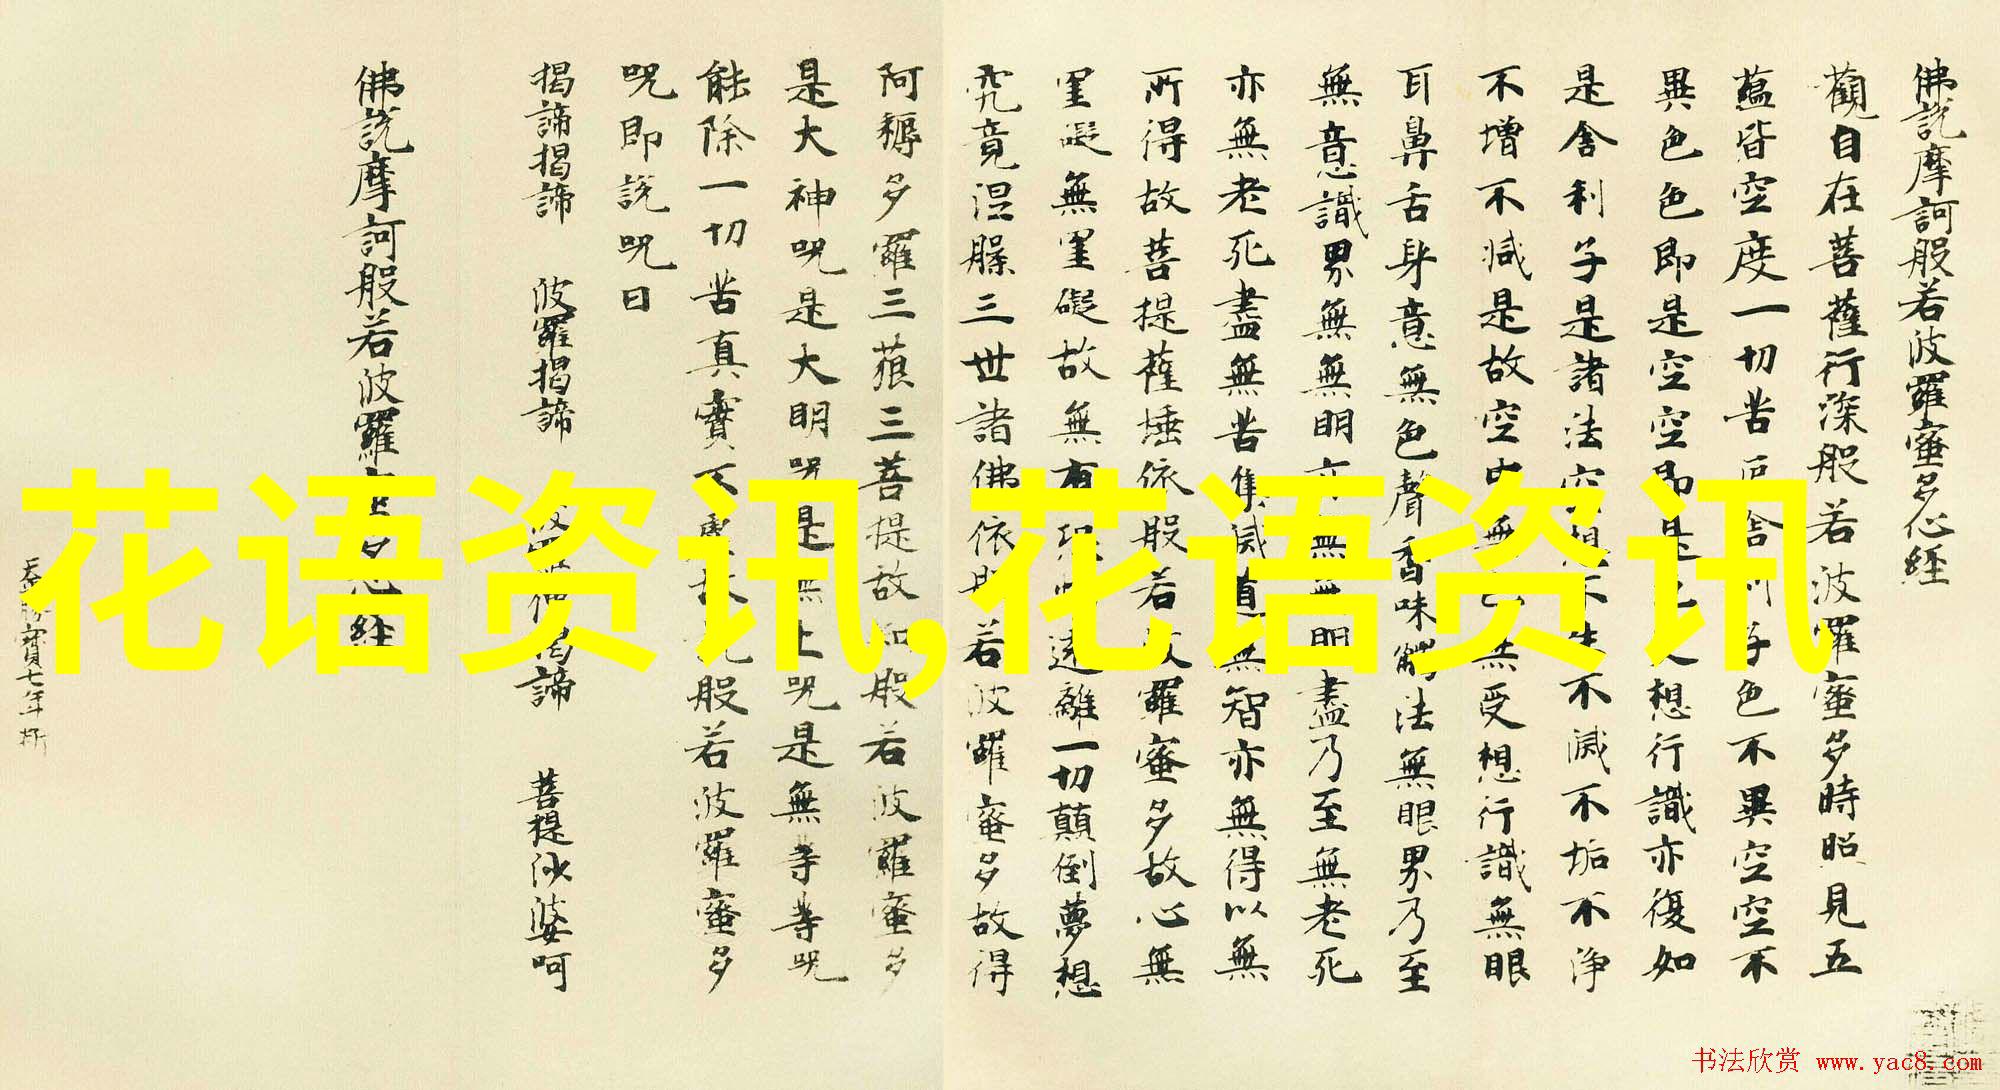 佛說摩訶般若波羅蜜多心経
觀自在菩薩行深般若波羅蜜多時照見五
蘊皆空度一切苦厄舍利子色不異空空不
異色色即是空空即是色受想行識亦復如
是舍利子是諸法空相不生不滅不垢不淨
不增不減是故空中無色無受想行識無眼
耳鼻舌身意無色聲香味觸法無眼界乃至
無意識界無無明亦無無明盡乃至無老死
亦無老死盡無苦集滅道無智亦無得以無
所得故菩提薩埵依般若波羅蜜多故心無
罣礙無罣礙故無有恐怖遠離一切顛倒夢想
究竟涅槃三世諸佛依般若波羅蜜多故得
阿耨多羅三藐三菩提故知般若波羅蜜多
是大神咒是大明咒是無上咒是無等等咒
能除一切苦真實不虛故說般若波羅蜜多
咒即說咒曰
揭諦揭諦 波羅揭諦 波羅僧揭諦 菩提沙婆呵
佛說摩訶般若波羅蜜多心経
花语资讯,花语资讯
书法欣赏 www.yac8.com